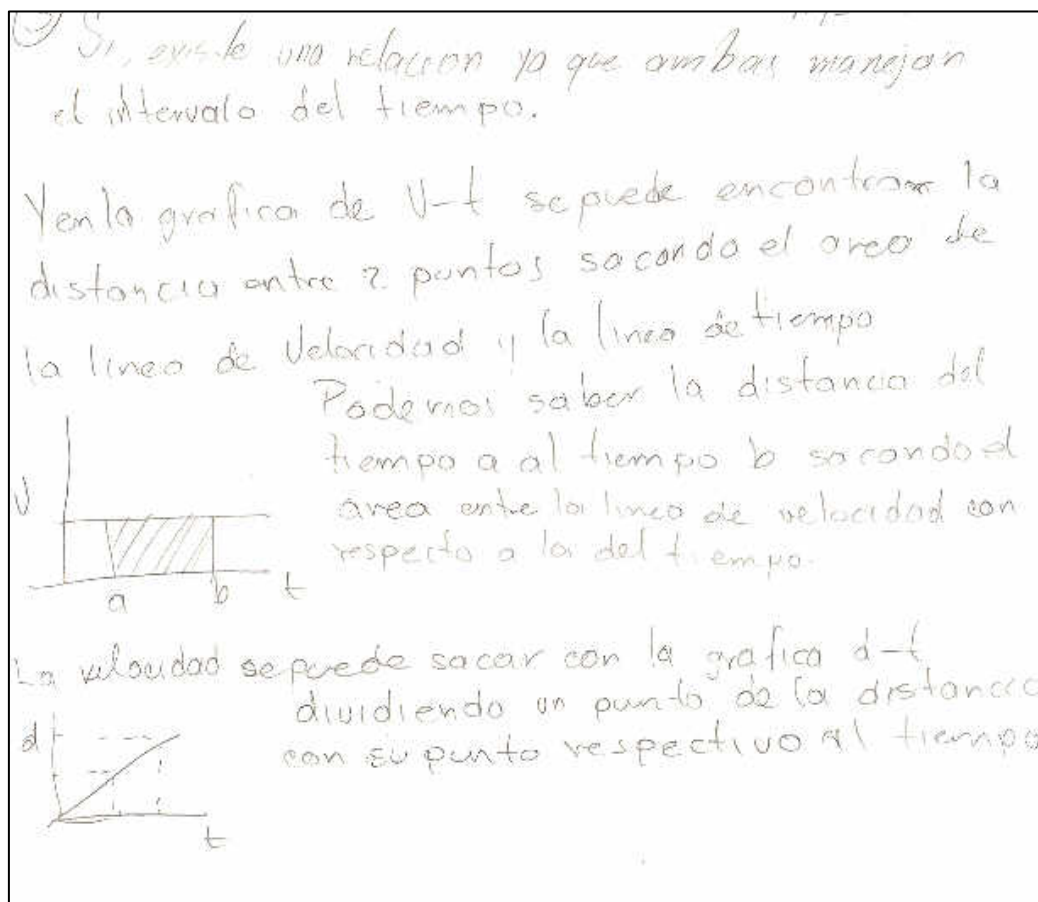 Si, existe una relacion ya que ambas manejan
el intervalo del tiempo.
Y en la grafica de V-t se puede encontrar la
distancia entre 2 puntos sacando el area de
la linea de Velocidad y la linea de tiempo
Podemos saber la distancia del
tiempo a al tiempo b sacando el
area entre la linea de velocidad con
respecto a la del tiempo.
V
a b t
La velocidad se puede sacar con la grafica d-t
dividiendo un punto de la distancia
con su punto respectivo al tiempo
d
t